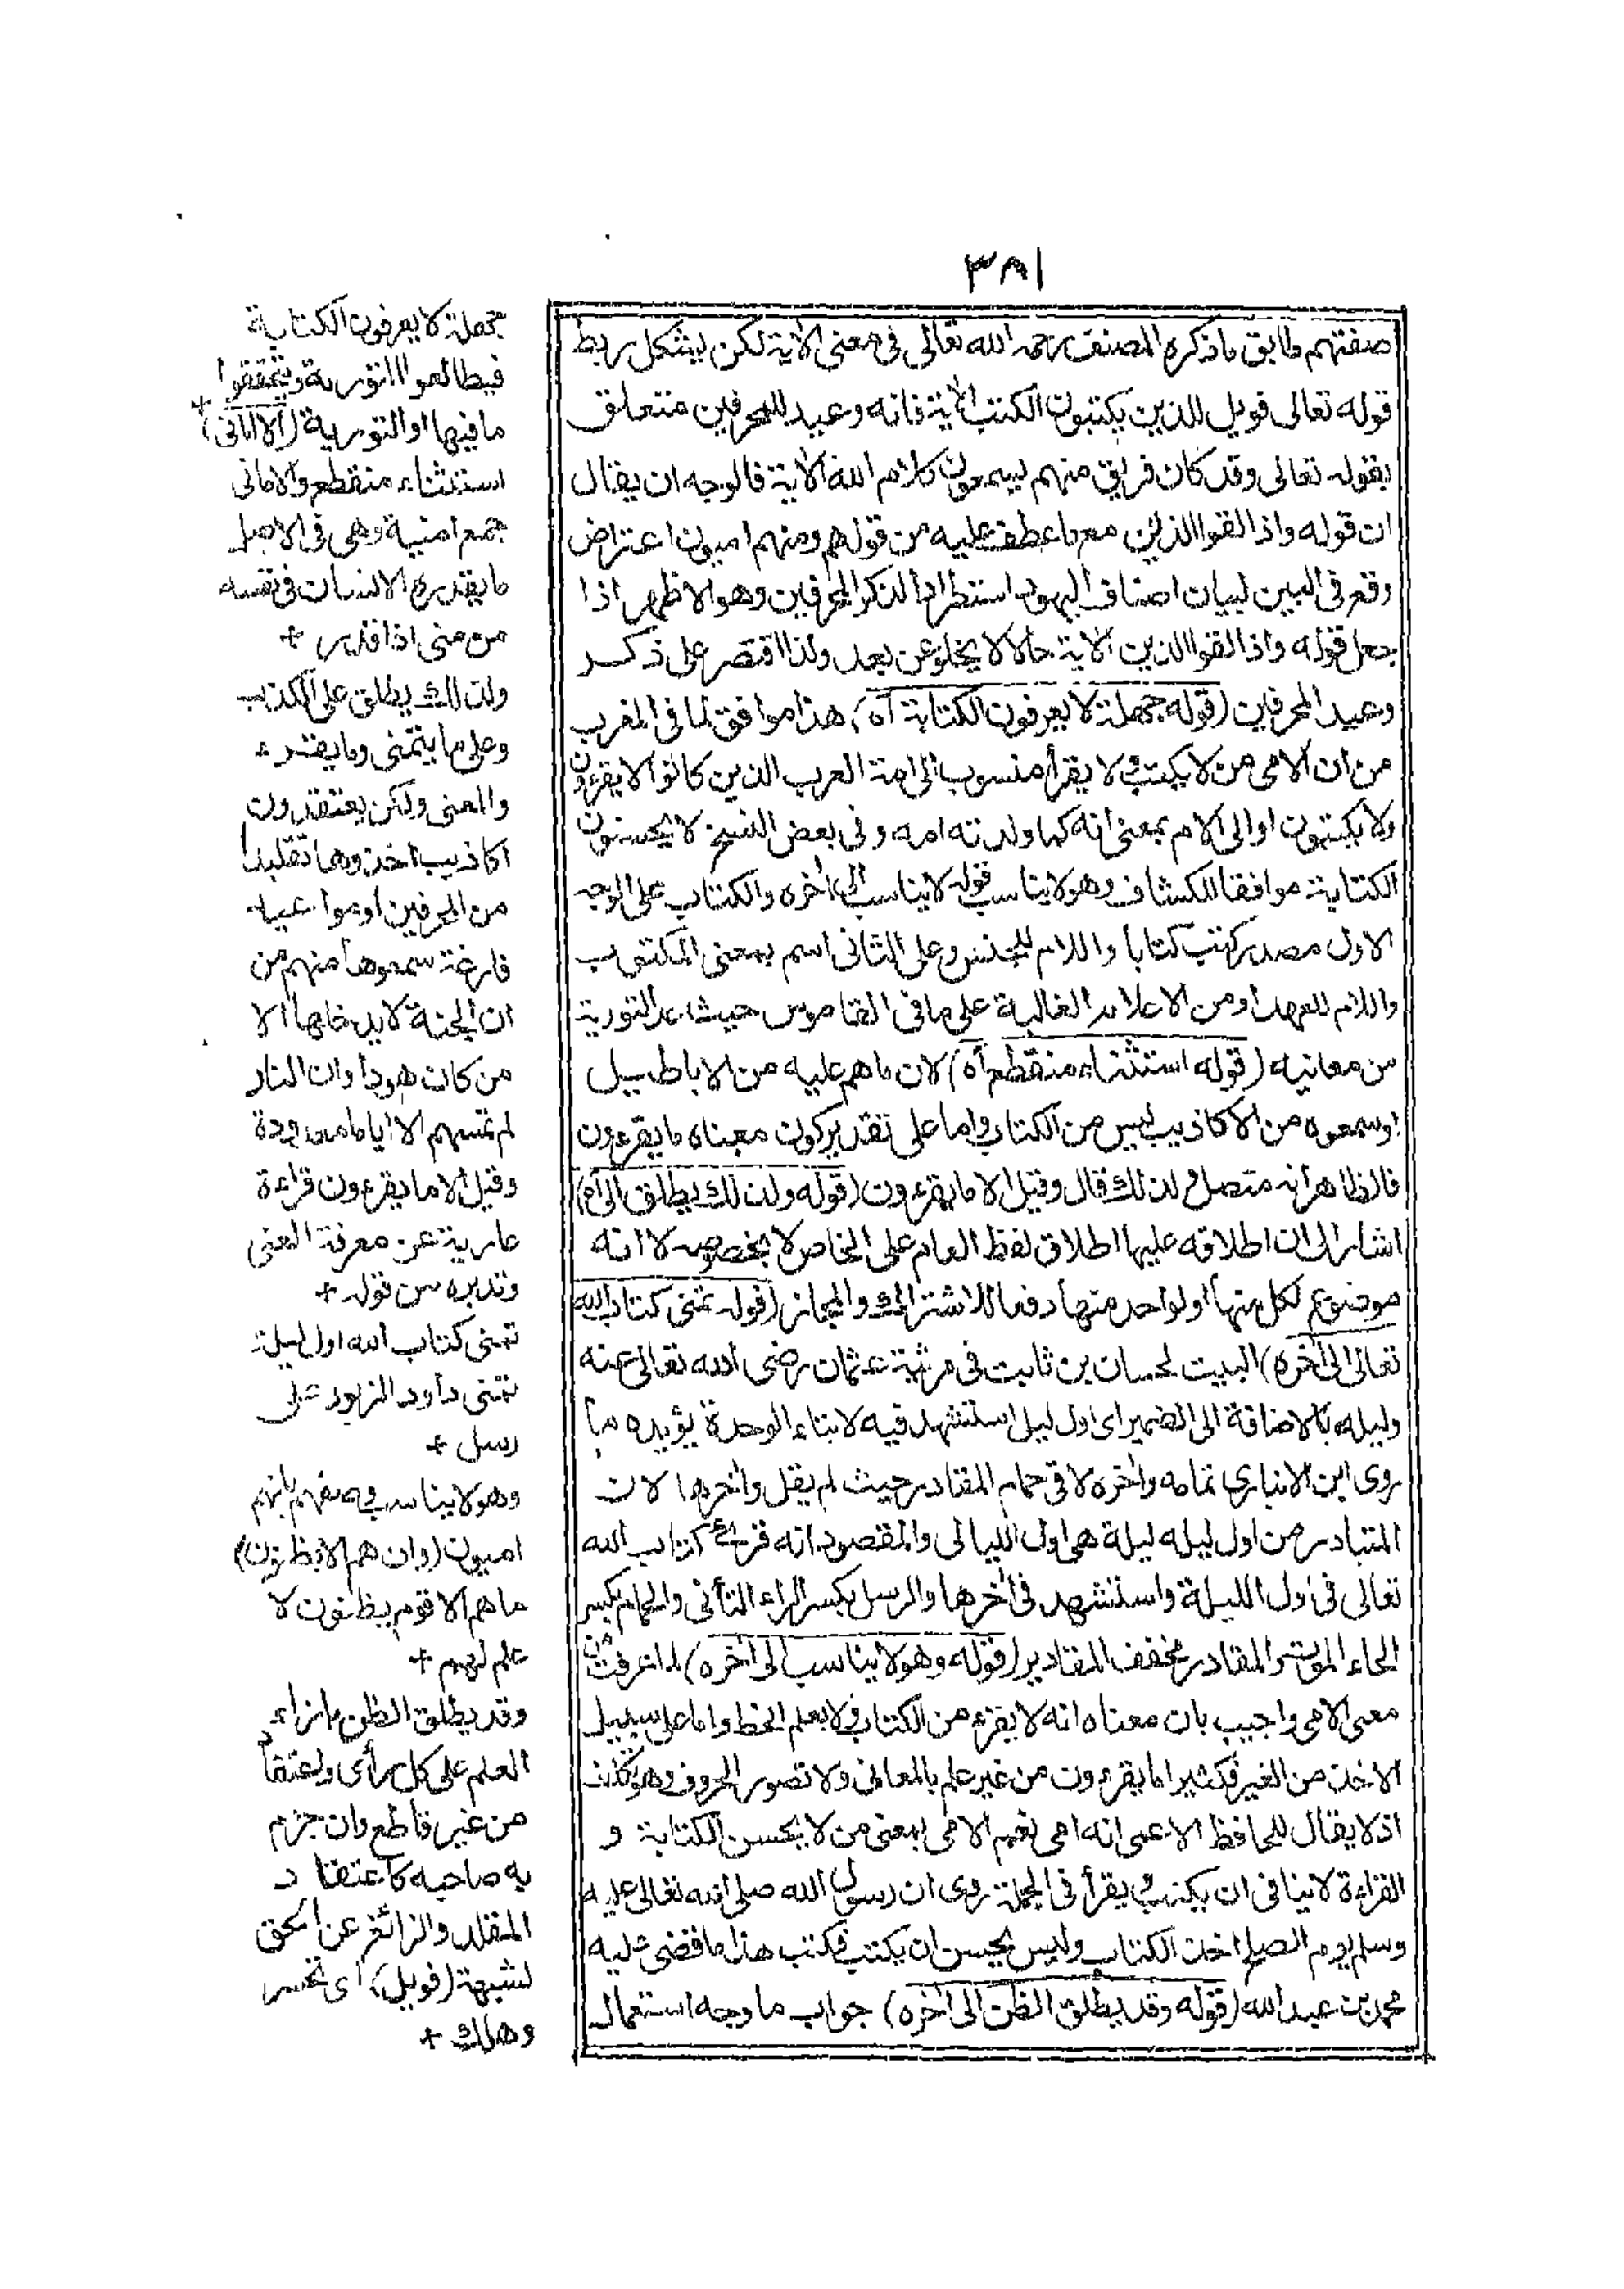 ٣٨١
صفتهم طابق ماذكره المصنف رحمه الله تعالى فى معنى الاية لكن يشكل ربط
قوله تعالى فويل للذين يكتبون الكتب الاية فانه وعيد للمحرفين متعلق
بقوله تعالى وقد كان فريق منهم يسمعون كلام الله الاية فالوجه ان يقال
ان قوله واذا لقوا الذين مع ما عطف عليه من قولهم ومنهم اميون اعتراض
وقع فى البين لبيان اصناف اليهود استطرادا لذكر المحرفين وهو الاظهر اذا
جعل قوله واذا لقوا الذين الاية حالا لا يخلو عن بعد ولذا اقتصر على ذكر
وعيد المحرفين (قوله جهلة لا يعرفون الكتابة آه) هذا موافق لما فى المغرب
من ان الامى من لا يكتب ولا يقرأ منسوب الى امة العرب الذين كانوا لا يقرءون
ولا يكتبون او الى الام بمعنى انه كما ولدته امه وفى بعض النسخ لا يحسنون
الكتابة موافقا للكشاف وهو لا يناسب قوله لا يناسب الى اخره والكتاب على الوجه
الاول مصدر كتب كتابا واللام للجنس وعلى الثانى اسم بمعنى المكتوب
واللام للعهد او من الاعلام الغالبة على ما فى القاموس حيث عد التورية
من معانيه (قوله استثناء منقطع آه) لان ما هم عليه من الاباطيل
او سمعوه من الاكاذيب ليس من الكتاب واما على تقدير كون معناه ما يقرءون
فالظاهر انه متصل ولذلك قال وقيل الا ما يقرءون (قوله ولذلك يطلق الى آه)
اشار الى ان اطلاقه عليها اطلاق لفظ العام على الخاص لا بخصوصه لا انه
موضوع لكل منها او لواحد منها دفعا للاشتراك والمجاز (قوله تمنى كتاب الله
تعالى الى اخره) البيت لحسان بن ثابت فى مرثية عثمان رضى الله تعالى عنه
وليله بالاضافة الى الضمير اى اول ليل استشهد فيه لا بتاء الوحدة يؤيده ما
روى ابن الانبارى تمامه واخره لاقى حمام المقادر حيث لم يقل واخرها لان
المتبادر من اول ليله ليلة هى اول الليالى والمقصود انه قرأ كتاب الله
تعالى فى اول الليلة واستشهد فى اخرها والرسل بكسر الراء التأنى والحمام بكسر
الحاء الموت والمقادر مخفف المقادير (قوله وهو لا يناسب الى اخره) لما عرفت من
معنى الامى واجيب بان معناه انه لا يقرء من الكتاب ولا يعلم الخط واما على سبيل
الاخذ من الغير فكثيرا ما يقرءون من غير علم بالمعانى ولا تصور الحروف وهو تكلف
اذ لا يقال للحافظ الاعمى انه امى نعم الامى بمعنى من لا يحسن الكتابة و
القراءة لا ينافى ان يكتب ويقرأ فى الجملة روى ان رسول الله صلى الله تعالى عليه
وسلم يوم الصلح اخذ الكتاب وليس يحسن ان يكتب فكتب هذا ما قضى عليه
محمد بن عبد الله (قوله وقد يطلق الظن الى اخره) جواب ما وجه استعمال
جهلة لا يعرفون الكتابة
فيطالعوا التورية ويتحققوا
ما فيها او التورية (الا امانى) +
استثناء منقطع والامانى
جمع امنية وهى فى الاصل
ما يقدره الانسان فى نفسه
من منى اذا قدر +
ولذلك يطلق على الكذب
وعلى ما يتمنى وما يقرء
والمعنى ولكن يعتقدون
اكاذيب اخذوها تقليدا
من المحرفين او مواعيد
فارغة سمعوها منهم من
ان الجنة لا يدخلها الا
من كان هودا وان النار
لم تمسهم الا اياما معدودة
وقيل الا ما يقرءون قراءة
عارية عن معرفة المعنى
وتدبره من قوله +
تمنى كتاب الله اول ليلة
تمنى داود الزبور على
رسل +
وهو لا يناسب وصفهم بانهم
اميون (وان هم الا يظنون)
ما هم الا قوم يظنون لا
علم لهم +
وقد يطلق الظن بازاء
العلم على كل رأى واعتقاد
من غير قاطع وان جزم
به صاحبه كاعتقاد
المقلد والزائغ عن الحق
لشبهة (فويل) اى تحسر
وهلك +